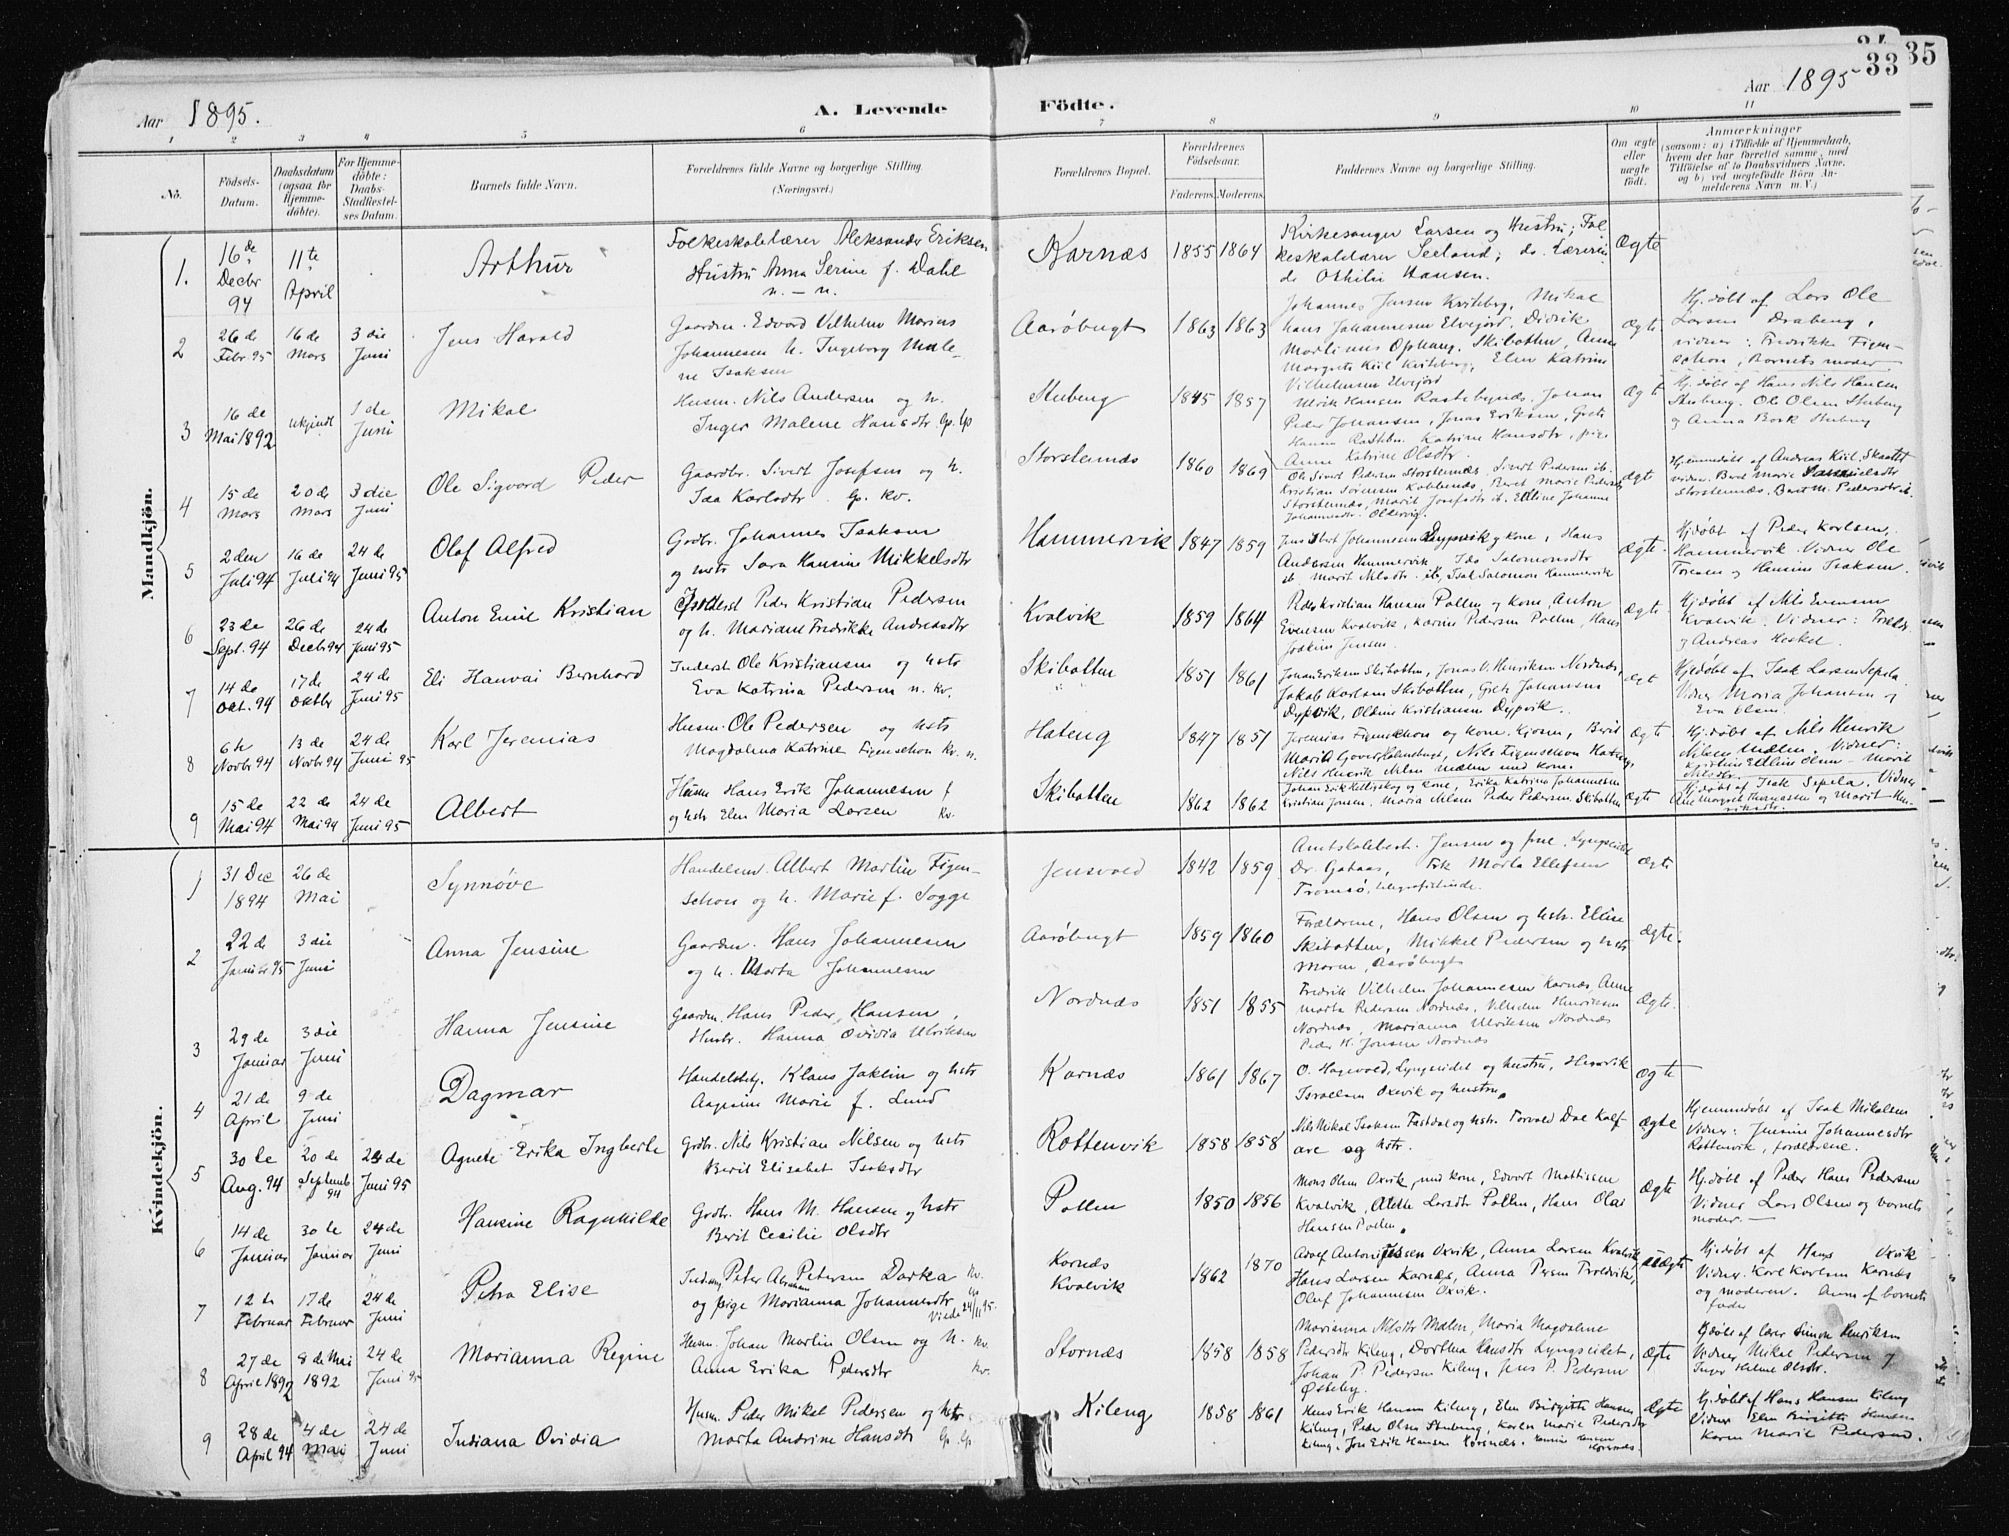 34
35
33
Aar 1895.
A. Levende
Födte.
Aar 1895
1 2 3 4 5 6 7 8 9 10 11
No.
Födsels-Datum.
Daabsdatum (ogsaa for Hjemme-döbte).
For Hjemme-döbte: Daabs-Stadfæstel-ses Datum.
Barnets fulde Navn.
Forældrenes fulde Navne og borgerlige Stilling.
(Næringsvei.)
Forældrenes Bopæl.
Forældrenes Födselsaar.
Faderens. Moderens.
Faddernes Navne og borgerlige Stilling.
Om ægte eller uægte födt.
Anmærkninger
(saasom: a) i Tilfælde af Hjemmedaab,
hvem der har forrettet samme, med
Tilföielse af to Daabsvidners Navne,
og b) ved uægtefödte Börn An-
melderens Navn m. V.)
Mandkjön.
1. 16de Decbr 94 11te April Arthur
Folkeskolelærer Aleksander Eriksen
Hustru Anna Serine f. Dahl
n. — n.
Karnæs 1855 1864
Kirkesanger Larsen og Hustru; Fol-
keskolelærer Seeland; do. Lærerin-
de Othilie Hansen.
Ægte
2 26de Febr. 95 16de Mars 3die Juni Jens Harald
Gaardm. Edvard Vilhelm Marius
Johannesen h. Ingeborg Male-
ne Isaksen
Aarøbugt 1863 1863
Johannes Jensen Kviteberg, Mikal
Hans Johannesen Elvejord, Didrik
Martinus Ophaug, Skibotten, Anne
Margrete Kiil Kviteberg, Elen Katrine
Vilhelmsen Elvejord
Ægte
Hj.døbt af Lars Ole
Larsen Draberg,
vidner: Fredrikke Figen-
schou, Barnets moder
3 16de Mai 1892 ukjendt 1de Juni Mikal
Husm. Nils Andersen og h.
Inger Malene Hansdtr Lp. Lp
Stubeng 1845 1857
Ulrik Hansen Rastebynæs, Johan
Peder Johansen, Jonas Eriksen, Grete
Hansen Rasteb. Katrine Hansdtr, pige
Anne Katrine Olsdtr.
Ægt
Hj.døbt af Hans Nils Hansen
Stubeng. Ole Olsen Stubeng
og Anna Bork Stubeng
4 15de Mars 20de Mars 3die Juni Ole Sigvard Peder
Gaardbr. Sivert Josefsen og h.
Ida Karlsdtr. Lp. Kv.
Storstennæs 1860 1869
Ole Sivert Pedersen Storstennæs, Sivert Pedersen ib.
Kristian Sørensen Kobbenæs, Beret Marie Pedersen
Storstennæs, Marit Josefsdtr ib. Elline Johanne
Johannesdtr. Oldervig.
ægt
Hjemmedøbt af Andreas Kiil, Skattøl
vidner: Beret Marie Samuelsdtr
Storstennæs, Beret M. Pedersdtr ib.
5 2den Juli 94 16de Juli 94 24de Juni 95 Olaf Alfred
Grdbr. Johannes Isaksen
og hstr Sara Hansine Mikkelsdtr
Hammervik 1847 1859
Andersen Hammervik, Ida Salomonsdtr
ib. Marit Nilsdtr. ib., Isak Salomon Hammervik
ægte.
Hj.døbt af Peder Karlsen,
Hammervik. Vidner Ole
Tomasen og Hansine Isaksen.
6 23de Sept. 94 26de Decbr 94 24de Juni 95 Anton Emil Kristian
Inderst Peder Kristian Pedersen
og h. Mariane Fredrikke Andreasdtr
Kvalvik 1859 1864
Peder Kristian Hansen Pollen og kone, Anton
Evensen Kvalvik, Karine Pedersen Pollen, Hans
Joakim Jensen.
ægte.
Hj.døbt af Nils Evensen
Kvalvik. Vidner: Foreldr.
og Andreas Heskel.
7 14de Okt. 94 17de Oktbr 24de Juni 95 Eli Hanvai Bernhard
Inderst Ole Kristiansen og hstr
Eva Katrina Pedersen n. kv.
Skibotten 1851 1861
Johan Eriksen Skibotten, Jonas V. Henriksen Nordnæs,
Jakob Karlsen Skibotten, Grete Johansens
Dypvik, Oldine Kristiansen Dypvik.
ægt
Hj.døbt af Isak Larsen Sepela.
Vidner Maria Johansen og
Eva Olsen.
8 6te Novbr 94 13de Novbr 94 24de Juni 95 Karl Jeremias
Husm. Ole Pedersen og hstr
Magdalena Katrine Figenschou Kv. n.
Hateng 1847 1851
Jeremias Figenschou og kone. Kjosen, Berit
Marit Gover Halmebugt, Nils Figenschou Hateng,
Nils Henrik Nilsen Mælen med kone.
ægt
Hj.døbt af Nils Henrik
Nilsen Mælen. Vidner:
Kristine Elline Olsen — Marit
Nilsdtr.
9 15de Mai 94 22de Mai 94 24de Juni 95 Albert
Husm Hans Erik Johannesen f
og hstr Elen Maria Larsen Kv.
Skibotten 1862 1862
Johan Erik Kelligskog og kone, Erika Katrina Johannesen
Kristian Jensen. Maria Nilsen Peder Pedersen. Skibotten
ægte
Hj.døbt af Isak Sepela. Vidner
Ane Margret Thomasen og Marit Hen-
riksdtr.
Kvindekjön.
1 31 Dec 1894 26de Mai Synnøve
Handelsm. Albert Martin Figen-
schou og h. Marie f. Sogge
Jensvold 1842 1859
Amtskolebest. Jensen og frue, Lyngseidet
Dr. Gabaas, Frk Marta Ellefsen
Tromsø, telegrafistinde.
ægte
2 22de Januar 95 3die Juni Anna Jensine
Gaardm. Hans Johannesen
og h. Marta Johannesen
Aarøbugt 1859 1860
Forældrene, Hans Olsen og hstr. Elline
Skibotten, Mikkel Pedersen og hstr
Maren, Aarøbugt
ægte.
3 29de Januar 3die Juni Hanna Jensine
Gaardm. Hans Peder Hansen,
Hustr. Hanna Ovidia Ulriksen
Nordnæs 1851 1855
Fredrik Vilhelm Johannesen Karnæs, Anne
Marta Pedersen Nordnæs, Vilhelm Henriksen
Nordnæs, Marianna Ulriksen Nordnæs
Peder H. Jensen Nordnæs
Ægte.
4 21de April 9de Juni Dagmar
Handelsbetj. Klaus Jaklin og hstr
Aagesine Marie f. Lund
Karnæs 1861 1867
O. Hagevold, Lyngseidet og hustru, Henrik
Israelsen Oxvik og hustru
ægte
5 30te Aug. 94 20de Septemb 94 24de Juni 95 Agnete Erika Ingberte
Grdbr. Nils Kristian Nilsen og hstr
Berit Elisabet Isaksdtr
Rottenvik 1858 1858
Nils Mikal Isaksen Fastdal og hstr. Torvald Dal Kalf-
are og hstr.
ægte
Hjemmedøbt af Isak Mikalsen
Vidner: Jensine Johannesdtr
Rottenvik, forældrene.
6 14de Januar 30te Januar 24de Juni Hansine Ragnhilde
Grdbr. Hans M. Hansen og hstr
Berit Cecilie Olsdtr
Pollen 1850 1856
Mons Olsen Oxvik, med kone, Edvart Mattissen
Kvalvik, Alette Larsdtr Pollen, Hans Olai
Hansen Pollen.
Ægte
Hj.døbt af Peder Hans Pedersen
Vidner Lars Olsen og barnets
moder.—
7 12te Februar 17de Februar 24de Juni Petra Elise
Indm. Peter Abraham Petersen Darka Kv.
og pige Marianna Johannesdtr Lp
Viede 24/11 95.
Karnæs
Kvalvik 1862 1870
Adolf Antoni Jessen Oxvik, Anna Larsen Kvalvik
Hans Larsen Karnæs, Anna Persen Troldvik,
Oluf Johannesen Oxvik.
uægte
Hj.døbt af Hans Oxvik
Vidner. Karl Karlsen Karnæs
og moderen. Anm. af barnets
fader
8 27de April 1892 8de Mai 1892 24de Juni 95 Marianna Regine
Husm. Johan Martin Olsen og h. Kv.
Anna Erika Pedersdtr Kv.
Stornæs 1858 1858
Marianna Nilsdtr Mælen, Maria Magdalene
Pedersdtr Kileng, Dorthea Hansdtr Lyngseidet,
Johan P. Pedersen Kileng, Jens P. Pedersen
Østeby.
Ægte
Hjdøbt af lærer Simon Henriksen
Vidner Mikal Pedersen og
Inger Helene Olsdtr.
9 28de April 94 4de Mai 24de Juni Indiana Ovidia
Husm. Peder Mikal Pedersen og hstr
Marta Andrine Hansdtr Lp. Lp.
Kileng 1858 1861
Hans Erik Hansen Kileng, Elen Birgitte Hansen
Kileng, Peder Olsen Stubeng, Karen Marie Pedersdtr
Kileng. Jon Erik Hansen Horsnæs.
Ægte
Hj.døbt af Hans Hansen Kileng
Vidner Elen Birgitte Hansen
Karen Marie Pedersen.